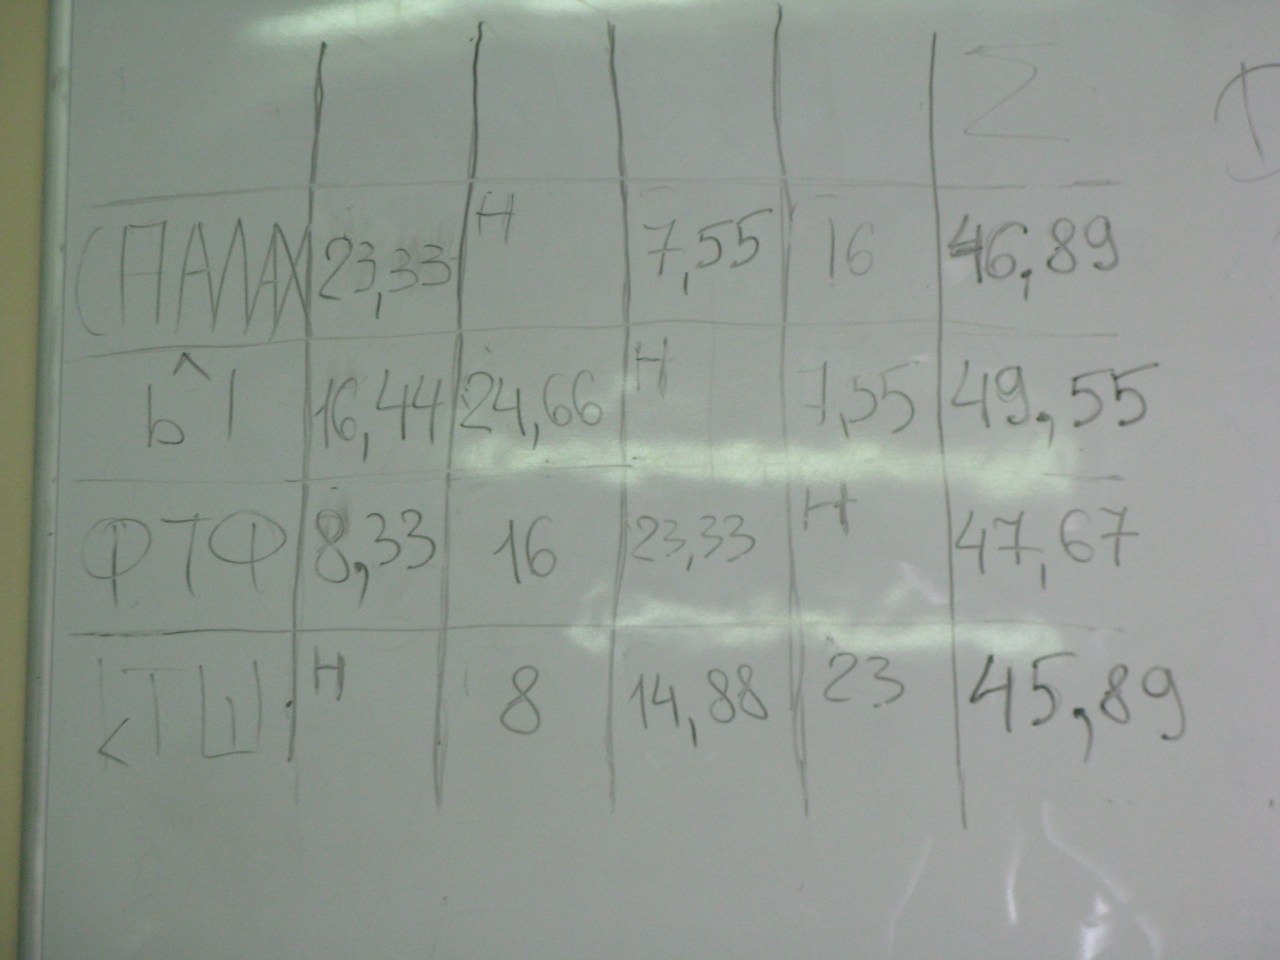 Σ
СПАЛАХ 23,33 Н 7,55 16 46,89
ЫЛ 16,44 24,66 Н 7,55 49,55
ФТФ 8,33 16 23,33 Н 47,67
Н 8 14,88 23 45,89